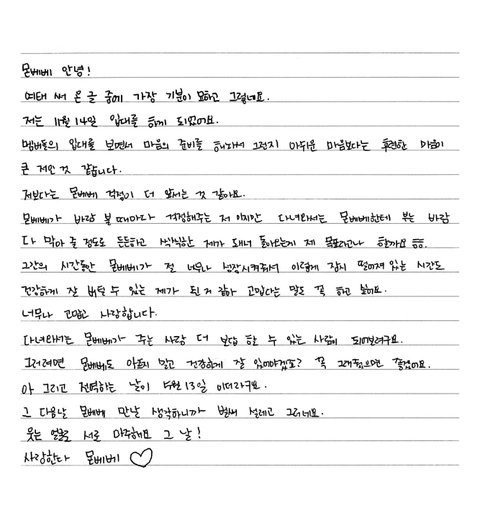 몬베베 안녕!
여태 써 온 글 중에 가장 기분이 묘하고 그렇네요.
저는 11월 14일 입대를 하게 되었어요.
멤버들의 입대를 보면서 마음의 준비를 해놔서 그런지 아쉬운 마음보다는 후련한 마음이
큰 저인 것 같습니다.
저보다는 몬베베 걱정이 더 앞서는 것 같아요.
몬베베가 바람 불 때마다 걱정해주는 저 이지만 다녀와서는 몬베베한테 부는 바람
다 막아 줄 정도로 든든하고 씩씩한 제가 돼서 돌아오는게 제 목표라고나 할까요 ㅎㅎ.
그간의 시간동안 몬베베가 절 너무나 성장시켜줘서 이렇게 잠시 떨어져 있는 시간도
건강하게 잘 버틸 수 있는 제가 된 거 같아 고맙다는 말도 꼭 하고 싶어요.
너무나 고맙고 사랑합니다.
다녀와서는 몬베베가 주는 사랑 더 보답 할 수 있는 사람이 되어볼려구요.
그러려면 몬베베도 아프지 말고 건강하게 잘 있어야겠죠? 꼭 그래줬으면 좋겠어요.
아 그리고 전역하는 날이 5월 13일 이더라구요.
그 다음날 몬베베 만날 생각하니까 벌써 설레고 그러네요.
웃는 얼굴로 서로 마주해요 그 날!
사랑한다 몬베베 ♡